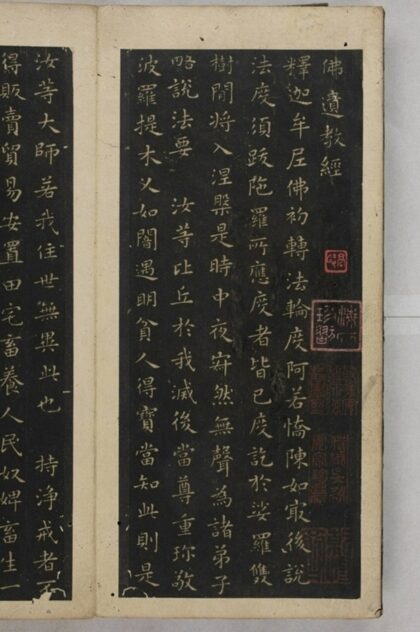 佛遺教經
釋迦牟尼佛初轉法輪度阿若憍陳如冣後說
法度須跋陁羅所應度者皆已度訖於娑羅雙
樹間將入涅槃是時中夜寂然無聲為諸弟子
略說法要 汝等比丘於我滅後當尊重珎敬
波羅提木乂如闇遇明貧人得寶當知此則是
汝等大師若我住世無異此也 持淨戒者不
得販賣貿易安置田宅畜養人民奴婢畜生一